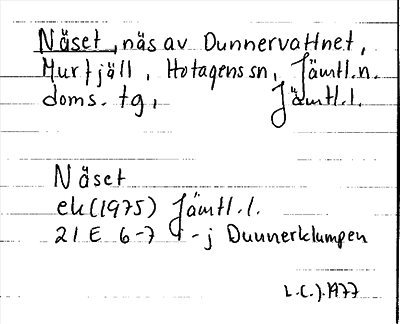 Näset, näs av Dunnervattnet,
Murfjäll, Hotagens sn, Jämtl.n.
doms. tg, Jämtl.l.
Näset
ek(1975) Jämtl.l.
21 E 6-7 i-j Dunnerklumpen
L.C.J.1977